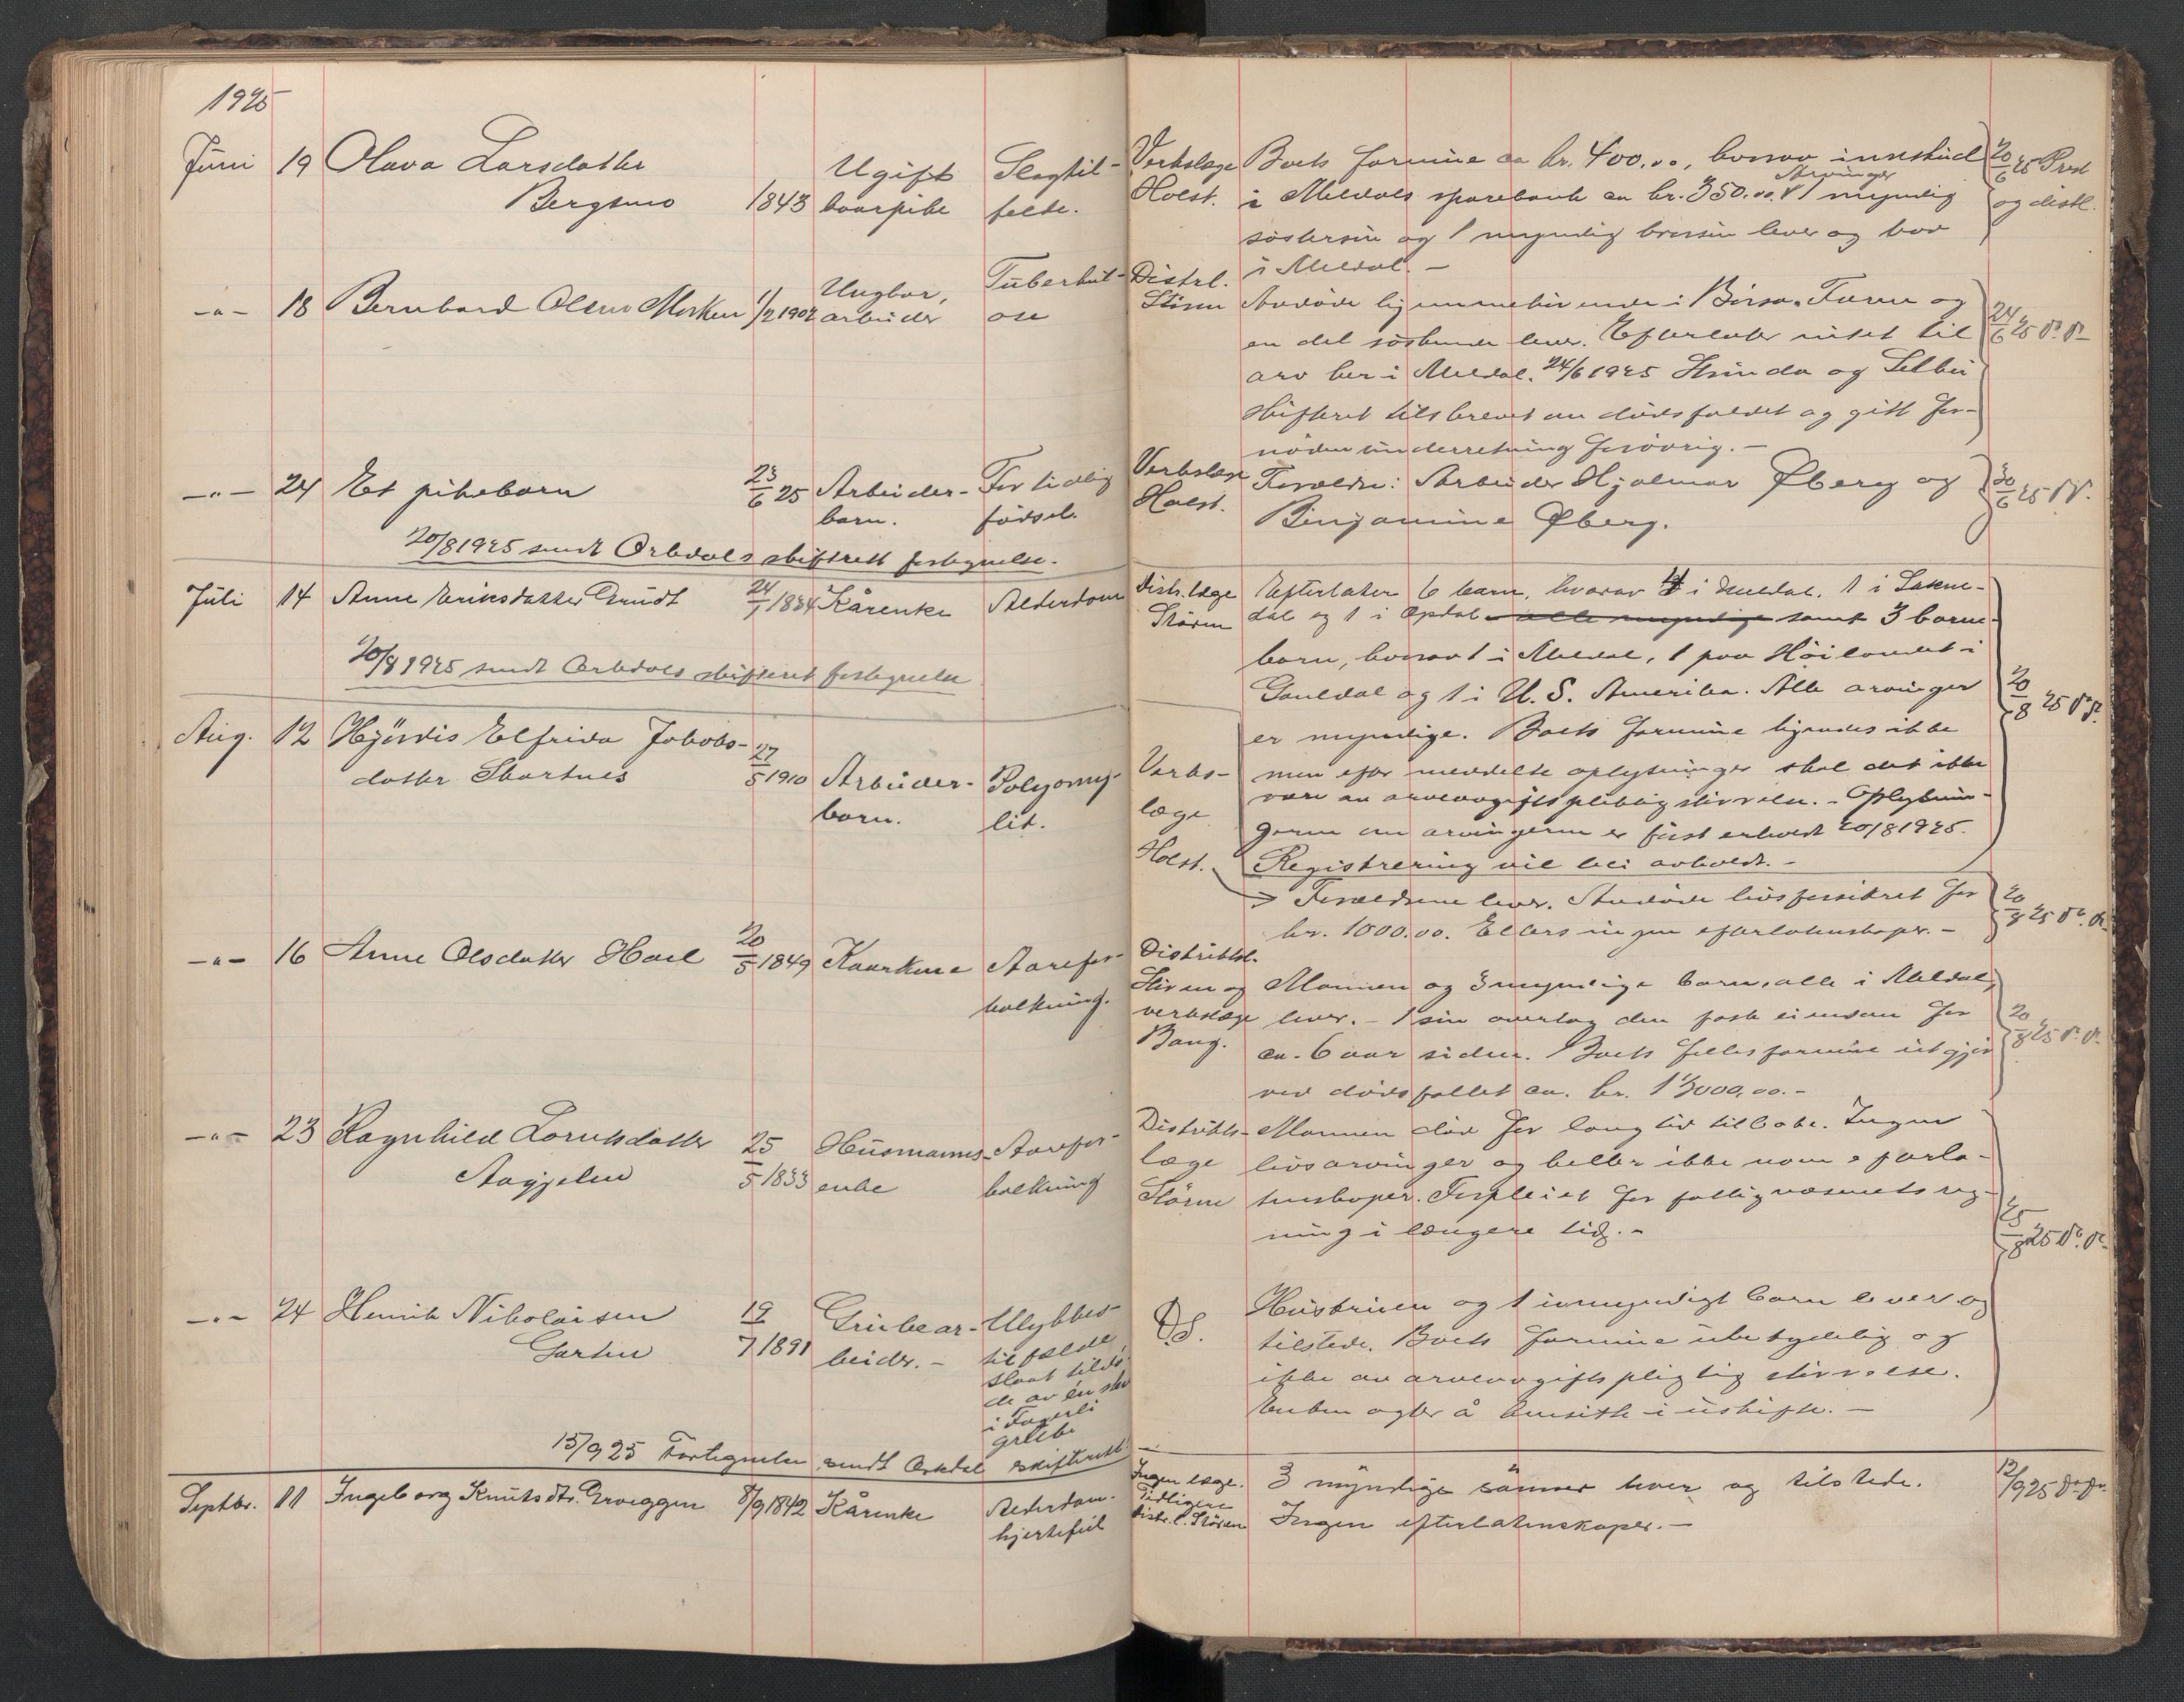 1925
Juni 19 Olava Larsdatter Ugift Slagtil- Verkslæge Boets formue ca kr. 400.00, hvorav innskud 20/6 25 Prest
Bergsmo 1843 kaarpike felde. Holst. i Meldals sparebank ca kr. 350.00. Arvinger 1 myndig og distl.
søstersøn og 1 myndig brorsøn lever og bor
i Meldal. -
-"- 18 Bernhard Olsen Merken 1/2 1902 Ungkar, arbeider Tuberkul- ose Distrl. Støren Avdøde hjemmehørende i Børsa. Faren og 24/6 25 d° d°
en del søskende lever. Efterlater intet til
arv her i Meldal. 24/6 1925 Strinda og Selbu
skifteret tilskrevet om dødsfaldet og gitt for-
nøden underretning forøvrig. -
-"- 24 Et pikebarn 23/6 25 Arbeider- For tidlig Verkslæge Forældre: Arbeider Hjalmar Øberg og 30/6 25 d° d°.
barn. fødsel. Holst. Benjamine Øberg.
20/8 1925 sendt Orkdals skifterett fortegnelse.
Juli 14 Anne Eriksdatter Grudt 24/7 1834 Kårenke Alderdom Distr. læge Efterlater 6 barn, hvorav 4 i Meldal, 1 i Sokne-
Støren dal og 1 i Opdal - alle myndige samt 3 barne-
20/8 1925 sendt Orkdals skifteret fortegnelse
barn, hvorav 1 i Meldal, 1 paa Høilandet i
Gauldal og 1 i U. S. Amerika. Alle arvinger 20/8 25 d° d°.
Aug. 12 Hjørdis Elfrida Jakobs- er myndige. Boets formue kjendes ikke
datter Skartnes 27/5 1910 Arbeider- Polyomy- Verks- men efter meddelte oplysninger skal det ikke
barn. lit. læge være av arveavgiftspliktig størrelse. - Oplysnin-
Holst. gerne om arvingerne er først erhvert 20/8 1925.
Registrering vil bli avholdt. -
Forældrene lever. Avdøde livsforsikret for 20/8 25 d° d°
kr. 1000.00. Ellers ingen efterlatenskaper. -
-"- 16 Anne Olsdatter Hoel 20/5 1849 Kaarkone Aarefor- Distriktsl.
kalkning. Støren og Mannen og 3 myndige barn, alle i Meldal,
verkslæge lever. - 1 søn overtog den faste eiendom for 20/8 25 d° d°
Bang. ca. 6 aar siden. Boets fellesformue utgjør
ved dødsfallet ca. kr. 13000,00. -
-"- 23 Ragnhild Larsdatter 25/5 1833 Husmanns- Aarefor- Distrikts- Mannen død for lang tid tilbake. Ingen
Aagjelen enke kalkning læge livsarvinger og heller ikke noen eferla-
Støren tenskaper. Forpleiet for fattigvæsenets reg-
ning i længere tid. - 25/8 25 d° d°
-"- 24 Henrik Nikolaisen 19/7 1891 Grubear- Ulykkes- DS. Husbruen og 1 umyndigt barn lever og
Garten beider. - tilfælde, tilstede. Boets formue ubetydelig og
slaat tildø- ikke av arveavgiftspligtig størrelse.
de av en sten Enken agter å hensitte i uskifte. -
i Fagerli
grube
15/9 25 Fortegnelse sendt Orkdal skifterett
Septbr. 11 Ingeborg Knutsdtr. Groeggen 8/9 1842 Kårenke Alderdom. Ingen læge. 3 myndige sønner lever og tilstede. 12/9 25 d° d°
hjertefeil Tidligere distr. l. Støren Ingen efterlatenskaper. -